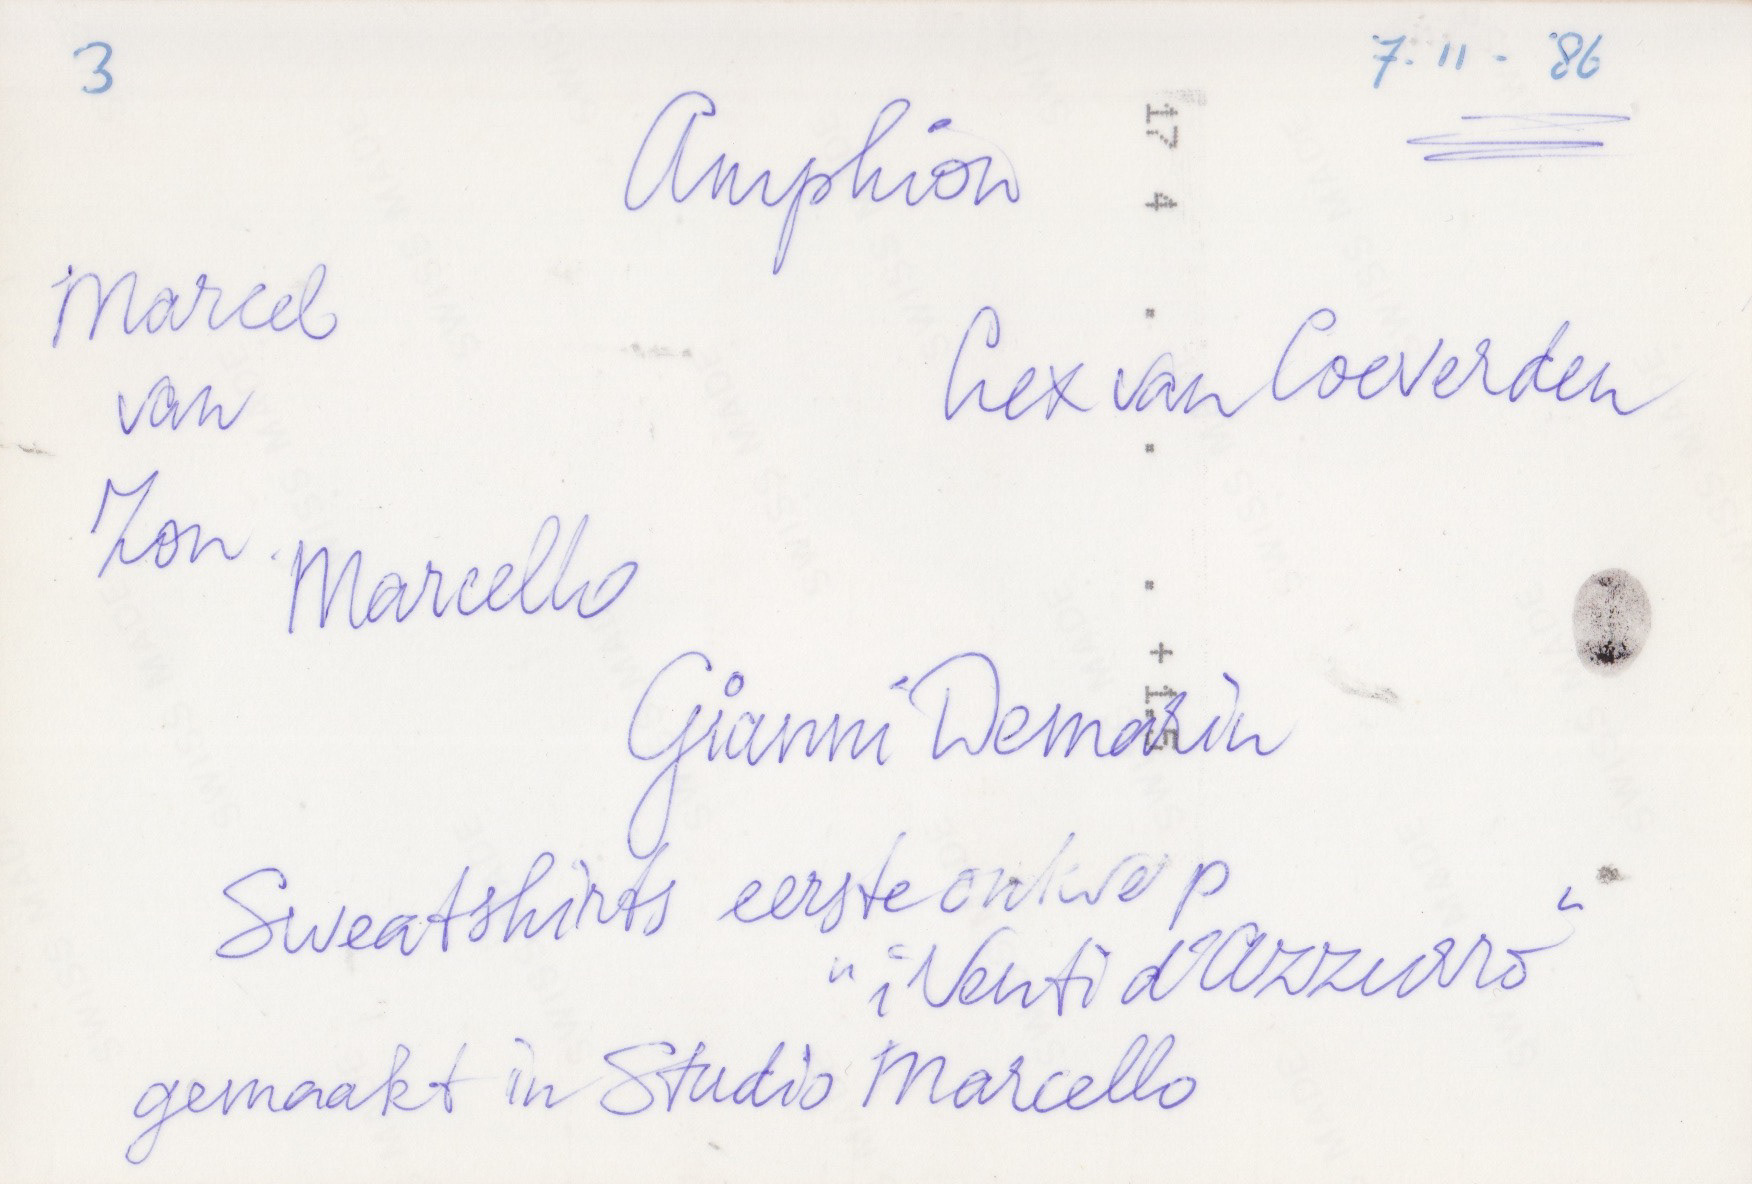 3
7.11-'86
Amphion
Marcel
van
Zon
Lex van Coeverden
Marcello
Gianni Demarin
Sweatshirts eerste ontwerp
"i Venti d'Azzurro"
gemaakt in Studio Marcello
17 4 . . . +1-5